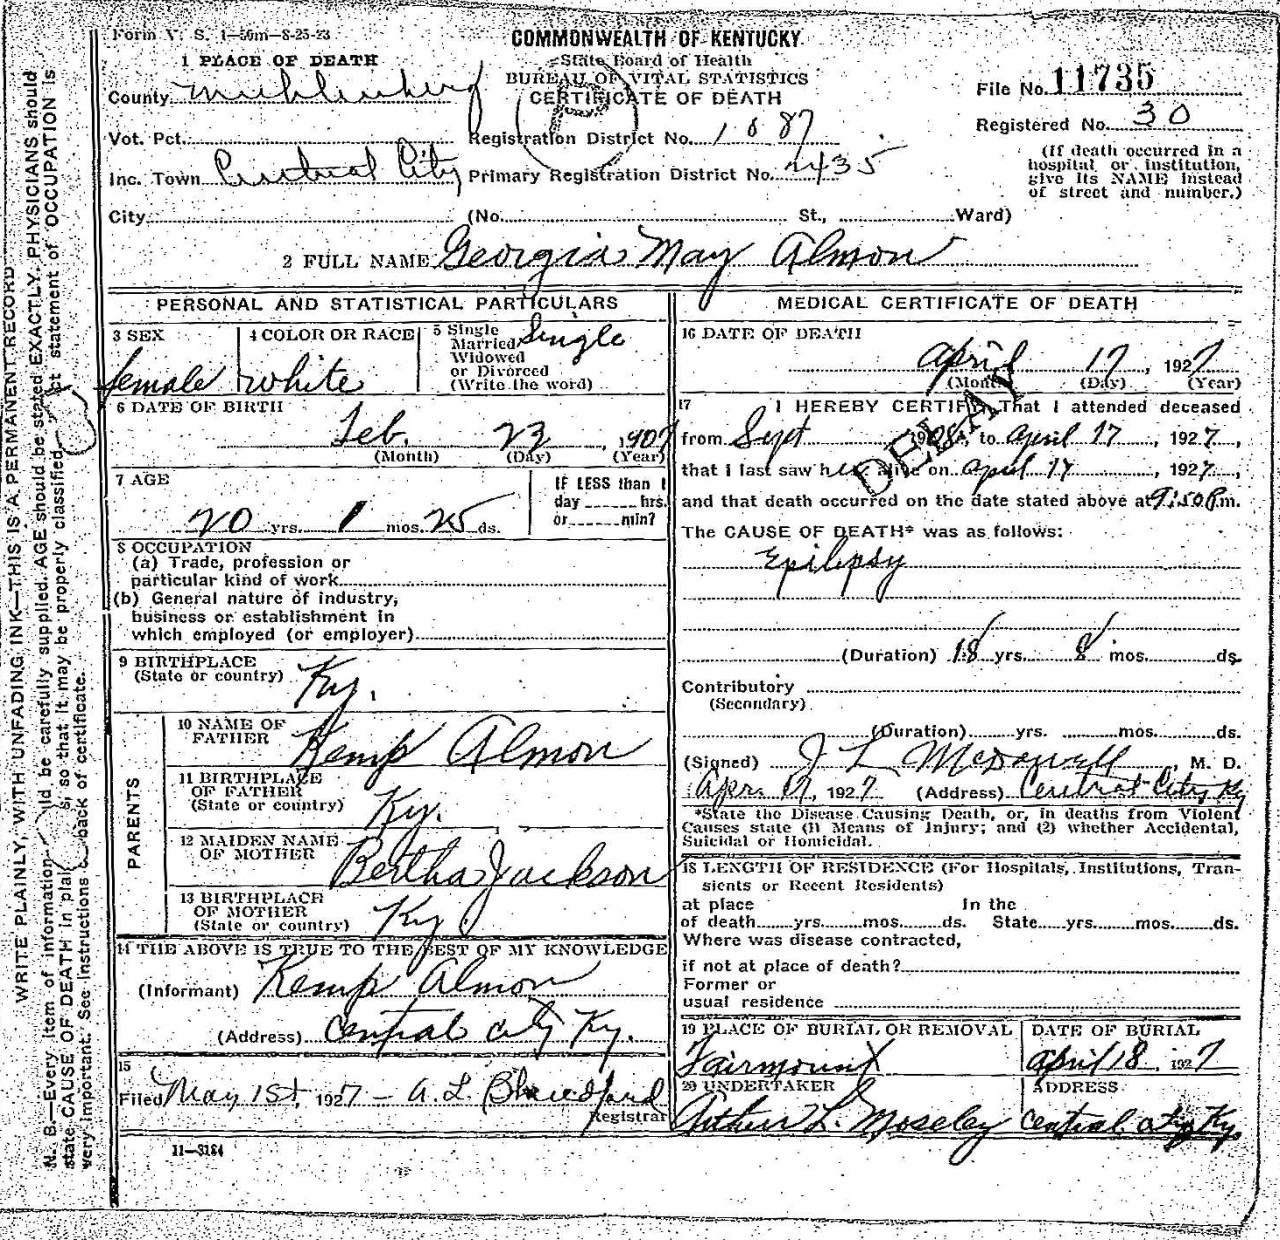 Form V. S. 1—50m—8-25-23
COMMONWEALTH OF KENTUCKY
State Board of Health
BUREAU OF VITAL STATISTICS
CERTIFICATE OF DEATH
1 PLACE OF DEATH
County Muhlenberg
Vot. Pct.
Inc. Town Central City
City (No. St., Ward)
Registration District No. 1087
Primary Registration District No. 2435
File No. 11735
Registered No. 30
(If death occurred in a
hospital or institution,
give its NAME instead
of street and number.)
2 FULL NAME Georgia May Almon
PERSONAL AND STATISTICAL PARTICULARS
3 SEX
female
4 COLOR OR RACE
white
5 Single
Married
Widowed
or Divorced
(Write the word)
Single
6 DATE OF BIRTH
Feb. 23, 1907
(Month) (Day) (Year)
7 AGE
20 yrs. 1 mos. 25 ds.
IF LESS than 1
day hrs.
or min?
8 OCCUPATION
(a) Trade, profession or
particular kind of work
(b) General nature of industry,
business or establishment in
which employed (or employer)
9 BIRTHPLACE
(State or country) Ky.
PARENTS
10 NAME OF
FATHER Kemp Almon
11 BIRTHPLACE
OF FATHER
(State or country) Ky.
12 MAIDEN NAME
OF MOTHER Bertha Jackson
13 BIRTHPLACE
OF MOTHER
(State or country) Ky
14 THE ABOVE IS TRUE TO THE BEST OF MY KNOWLEDGE
(Informant) Kemp Almon
(Address) Central City Ky.
15
Filed May 1st, 1927 — A. L.
Registrar
11—3184
MEDICAL CERTIFICATE OF DEATH
16 DATE OF DEATH
April 17, 1927
(Month) (Day) (Year)
DELAY
17 I HEREBY CERTIFY, That I attended deceased
from Sept 1908, to April 17, 1927,
that I last saw her alive on April 17, 1927,
and that death occurred on the date stated above at 9:50 P.m.
The CAUSE OF DEATH* was as follows:
Epilepsy
(Duration) 18 yrs. 8 mos. ds.
Contributory
(Secondary)
(Duration) yrs. mos. ds.
(Signed) J L McDowell, M. D.
Apr. 17, 1927 (Address) Central City Ky
*State the Disease Causing Death, or, in deaths from Violent
Causes state (1) Means of Injury; and (2) whether Accidental,
Suicidal or Homicidal.
18 LENGTH OF RESIDENCE (For Hospitals, Institutions, Tran-
sients or Recent Residents)
at place In the
of death yrs. mos. ds. State yrs. mos. ds.
Where was disease contracted,
if not at place of death?
Former or
usual residence
19 PLACE OF BURIAL OR REMOVAL
Fairmount
DATE OF BURIAL
April 18, 1927
20 UNDERTAKER
Arthur L. Moseley
ADDRESS
Central City Ky.
WRITE PLAINLY, WITH UNFADING INK—THIS IS A PERMANENT RECORD
N. B.—Every item of information should be carefully supplied. AGE should be stated EXACTLY. PHYSICIANS should
state CAUSE OF DEATH in plain so that it may be properly classified. statement of OCCUPATION is
very important. See instructions back of certificate.